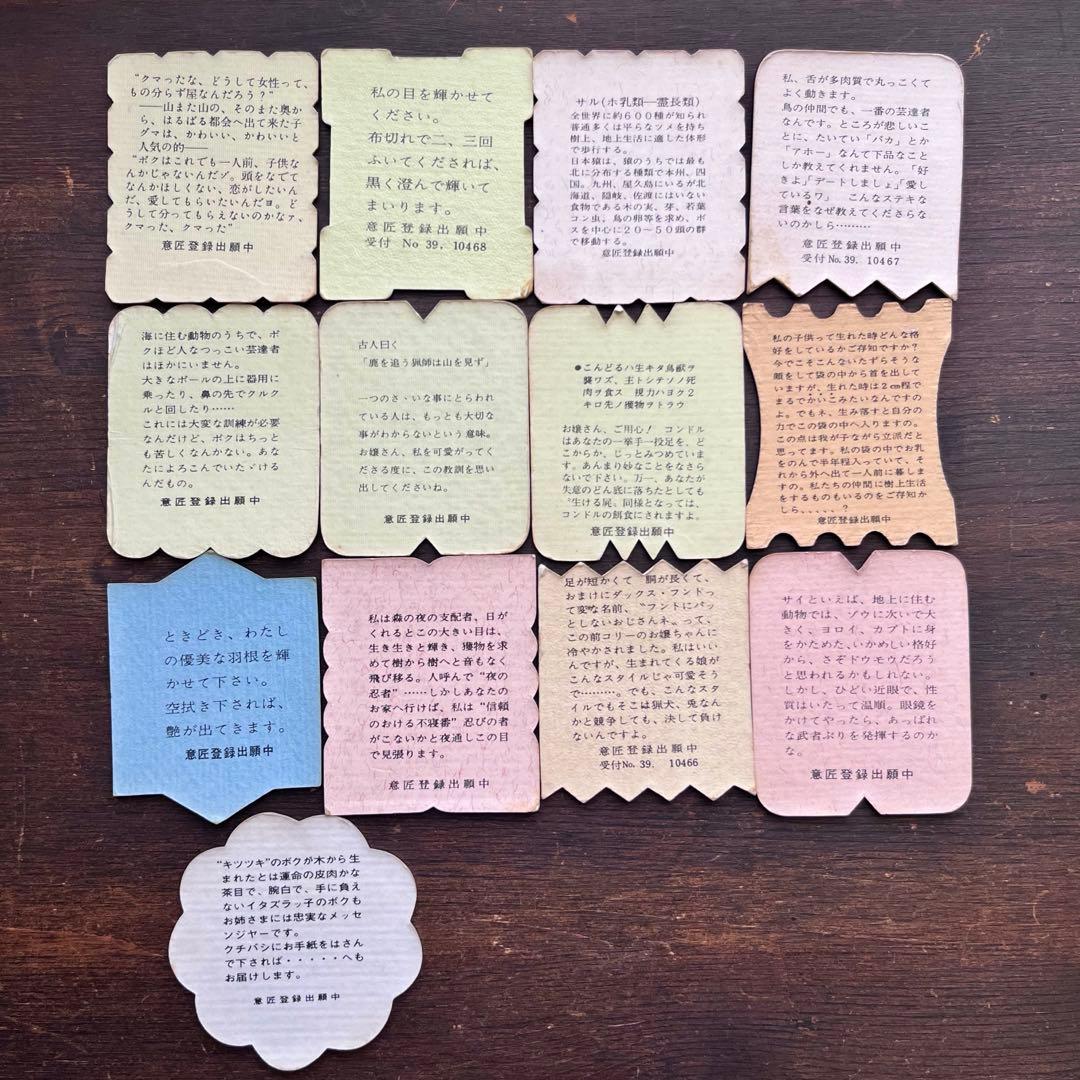 “クマったな、どうして女性って、
もの分らず屋なんだろう？”
――山また山の、そのまた奥か
ら、はるばる都会へ出て来た子
グマは、かわいい、かわいいと
人気の的――
“ボクはこれでも一人前、子供な
んかじゃないんだゾ。頭をなでて
なんかほしくない、恋がしたいん
だ、愛してもらいたいんだヨ。ど
うして分ってもらえないのかなァ、
クマった、クマった”
意匠登録出願中
私の目を輝かせて
ください。
布切れで二、三回
ふいてくだされば、
黒く澄んで輝いて
まいります。
意匠登録出願中
受付 No 39. 10468
サル(ホ乳類―霊長類)
全世界に約６００種が知られ
普通多くは平らなツメを持ち
樹上、地上生活に適した体形
で歩行する。
日本猿は、猿のうちでは最も
北に分布する種類で本州、四
国。九州、屋久島にいるが北
海道、隠岐、佐渡にはいない
食物である木の実、芽、若葉
コン虫、鳥の卵等を求め、ボ
スを中心に２０〜５０頭の群
で移動する。
意匠登録出願中
私、舌が多肉質で丸っこくて
よく動きます。
鳥の仲間でも、一番の芸達者
なんです。ところが悲しいこ
とに、たいてい「バカ」とか
「アホー」なんて下品なこと
しか教えてくれません。「好
きよ」「デートしましょ」「愛し
ているワ」　こんなステキな
言葉をなぜ教えてくださらな
いのかしら………
意匠登録出願中
受付 No. 39. 10467
海に住む動物のうちで、ボ
クほど人なつっこい芸達者
はほかにいません。
大きなボールの上に器用に
乗ったり、鼻の先でクルク
ルと回したり……
これには大変な訓練が必要
なんだけど、ボクはちっと
も苦しくなんかない。あな
たによろこんでいたゞける
んだもの。
意匠登録出願中
古人曰く
「鹿を追う猟師は山を見ず」
一つのさゝいな事にとらわれ
ている人は、もっとも大切な
事がわからないという意味。
お嬢さん、私を可愛がってく
ださる度に、この教訓を思い
出してくださいね。
意匠登録出願中
●こんどるハ生キタ鳥獣ヲ
襲ワズ、主トシテソノ死
肉ヲ食ス　視力ハヨク２
キロ先ノ獲物ヲトラウ
お嬢さん、ご用心！ コンドル
はあなたの一挙手一投足を、ど
こからか、じっとみつめていま
す。あんまり妙なことをなさら
ないで下さい。万一、あなたが
失意のどん底に落ちたとしても
〝生ける屍〟同様となっては、
コンドルの餌食にされますよ。
意匠登録出願中
私の子供って生れた時どんな格
好をしているかご存知ですか？
今でこそこんないたずらそうな
顔をして袋の中から首を出して
いますが、生れた時は２㎝程で
まるでかいこみたいなんですの
よ。でもネ、生み落すと自分の
力でこの袋の中へ入りますの。
この点は我が子ながら立派だと
思ってます。私の袋の中でお乳
をのんで半年程入っていて、そ
れから外へ出て一人前に暮しま
すの。私たちの仲間に樹上生活
をするものもいるのをご存知か
しら、、、、、？
意匠登録出願中
ときどき、わたし
の優美な羽根を輝
かせて下さい。
空拭き下されば、
艶が出てきます。
意匠登録出願中
私は森の夜の支配者、日が
くれるとこの大きい目は、
生き生きと輝き、獲物を求
めて樹から樹へと音もなく
飛び移る。人呼んで“夜の
忍者”……しかしあなたの
お家へ行けば、私は“信頼
のおける不寝番”忍びの者
がこないかと夜通しこの目
で見張ります。
意匠登録出願中
足が短かくて　胴が長くて、
おまけにダックス・フンドっ
て変な名前、〝フントにパッ
としないおじさんネ〟って、
この前コリーのお嬢ちゃんに
冷やかされました。私はいい
んですが、生まれてくる娘が
こんなスタイルじゃ可愛そう
で………。でも、こんなスタ
イルでもそこは猟犬、兎なん
かと競争しても、決して負け
ないんですよ。
意匠登録出願中
受付No. 39. 10466
サイといえば、地上に住む
動物では、ゾウに次いで大
きく、ヨロイ、カブトに身
をかためた、いかめしい格好
から、さぞドウモウだろう
と思われるかもしれない。
しかし、ひどい近眼で、性
質はいたって温順。眼鏡を
かけてやったら、あっぱれ
な武者ぶりを発揮するのか
な。
意匠登録出願中
“キツツキ”のボクが木から生
まれたとは運命の皮肉かな
茶目で、腕白で、手に負え
ないイタズラッ子のボクも
お姉さまには忠実なメッセ
ンジヤーです。
クチバシにお手紙をはさん
で下されば・・・・・へも
お届けします。
意匠登録出願中